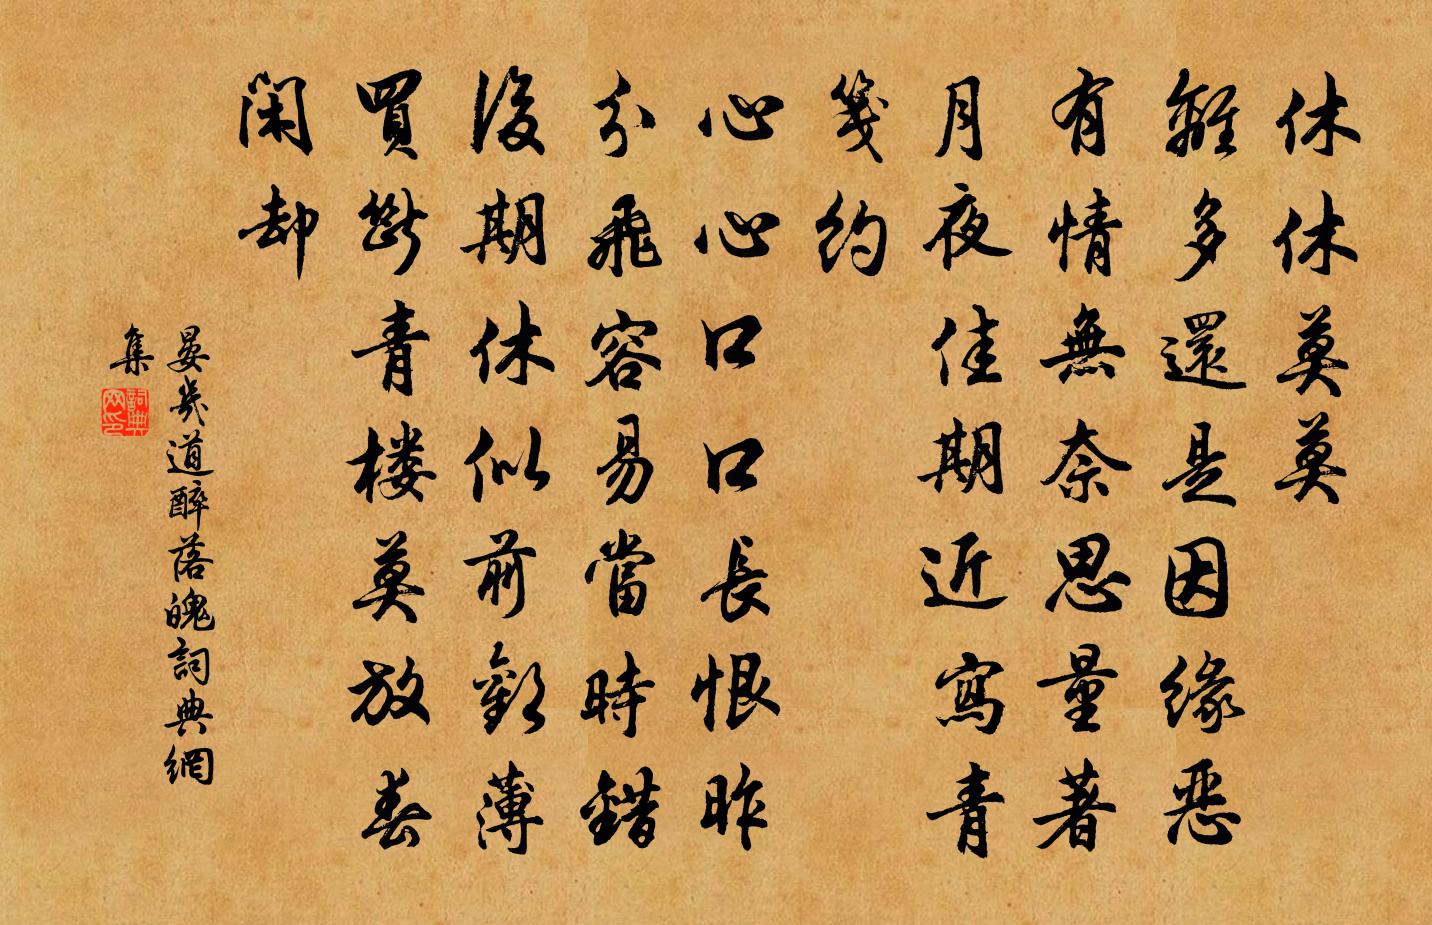 休休莫莫
離多還是因緣恶
有情無奈思量著
月夜佳期近寫青
箋約
心心口口長恨昨
分飛容易當時錯
後期休似前歡薄
買斷青楼莫放春
閑却
晏幾道醉落魄詞典網
集
詞典网印